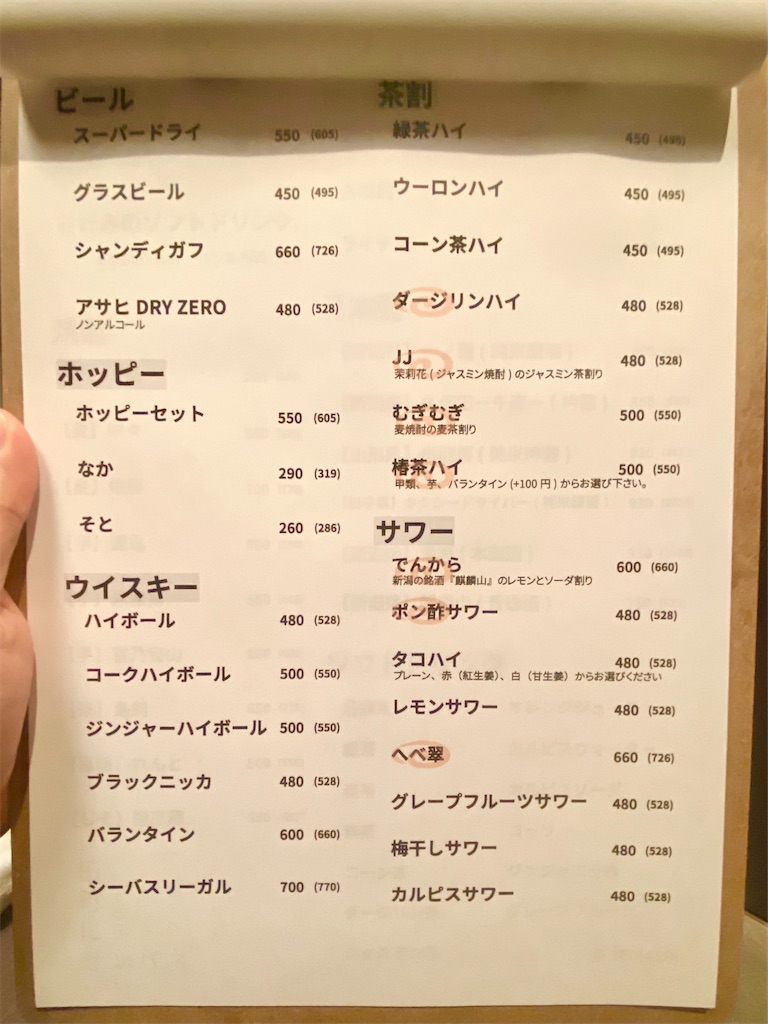 ビール
スーパードライ 550 (605)
グラスビール 450 (495)
シャンディガフ 660 (726)
アサヒ DRY ZERO 480 (528)
ノンアルコール
ホッピー
ホッピーセット 550 (605)
なか 290 (319)
そと 260 (286)
ウイスキー
ハイボール 480 (528)
コークハイボール 500 (550)
ジンジャーハイボール 500 (550)
ブラックニッカ 480 (528)
バランタイン 600 (660)
シーバスリーガル 700 (770)
茶割
緑茶ハイ 450 (495)
ウーロンハイ 450 (495)
コーン茶ハイ 450 (495)
ダージリンハイ 480 (528)
JJ 480 (528)
茉莉花 ( ジャスミン焼酎 ) のジャスミン茶割り
むぎむぎ 500 (550)
麦焼酎の麦茶割り
椿茶ハイ 500 (550)
甲類、芋、バランタイン (+100 円 ) からお選び下さい。
サワー
でんから 600 (660)
新潟の銘酒『麒麟山』のレモンとソーダ割り
ポン酢サワー 480 (528)
タコハイ 480 (528)
プレーン、赤（紅生姜）、白（甘生姜）からお選びください
レモンサワー 480 (528)
へべ翠 660 (726)
グレープフルーツサワー 480 (528)
梅干しサワー 480 (528)
カルピスサワー 480 (528)